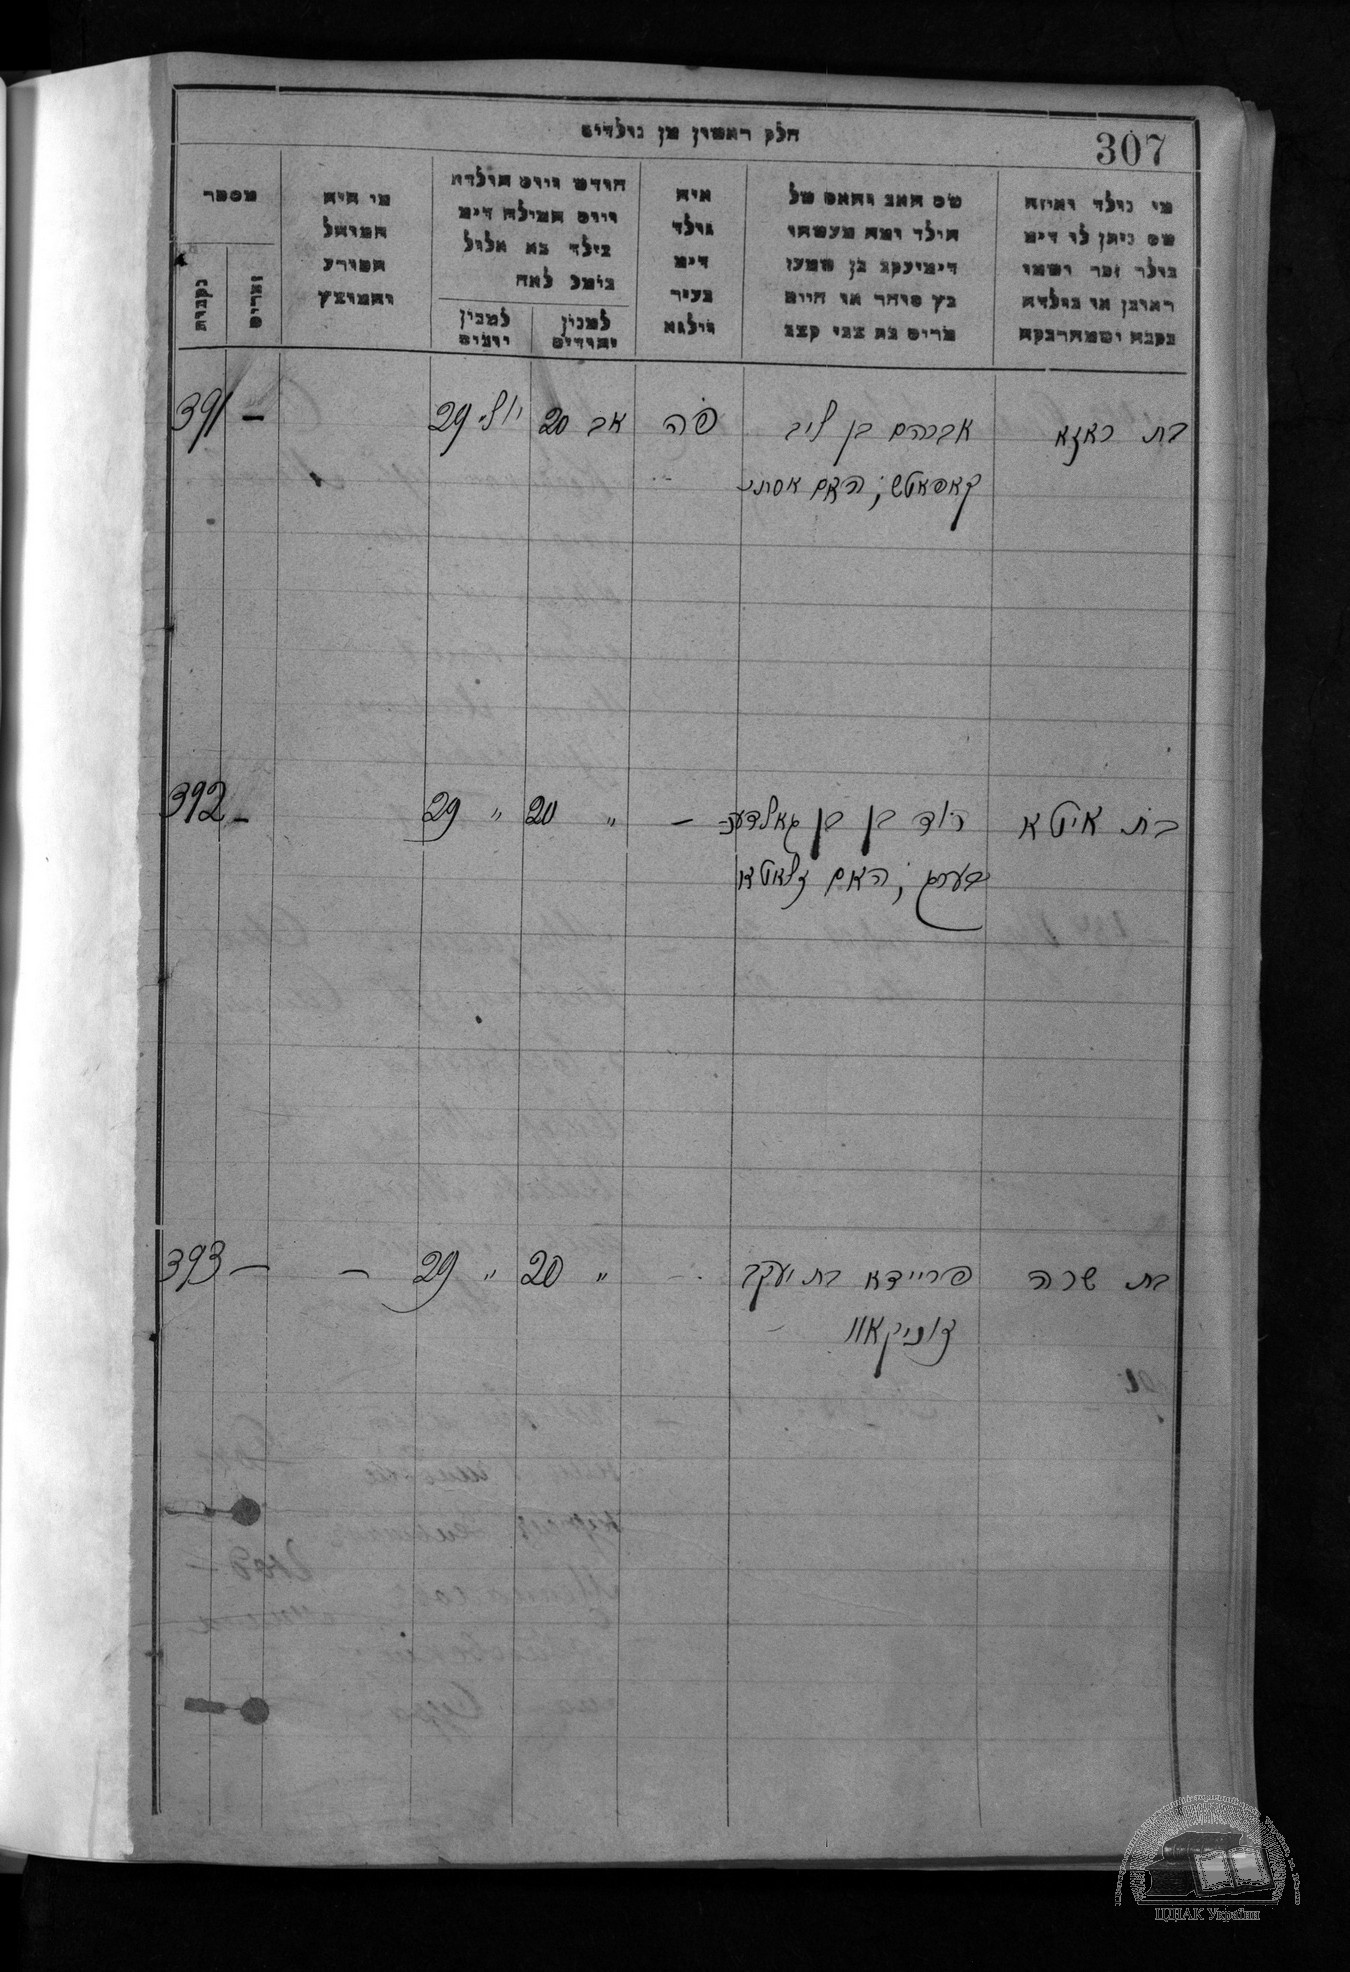 307
חלק ראשון מן נולדים
מי נולד ואיזה
שם ניתן לו דימ
נולד זכר ושמו
ראובן או נולדה
נקבה ושמה רבקה
שם האב והאם של
הילד ומה מעשהו
דימ יעקב בן שמעון
כץ סוחר או חיים
מרים בת צבי קצב
איה
נולד
דימ
בעיר
ווילנא
חודש ויום הולדת
ויום המילה דימ
נילד בא אלול
נימל לאח
למנין
יהודים
למנין
יונים
מי היה
המוהל
הפורע
והמוצץ
מספר
זכרים
נקבות
בת ראזא
אברהם בן ליב
קאפאטש; האם אסתר
פה
אב 20
יולי 29
—
391
בת איטא
דוד בן גאלדענ-
בערג; האם זלאטא
—
" 20
" 29
—
392
בת שרה
פריידא בת יעקב
צוניקאוו
" 20
" 29
—
—
393
ЦДІАК України